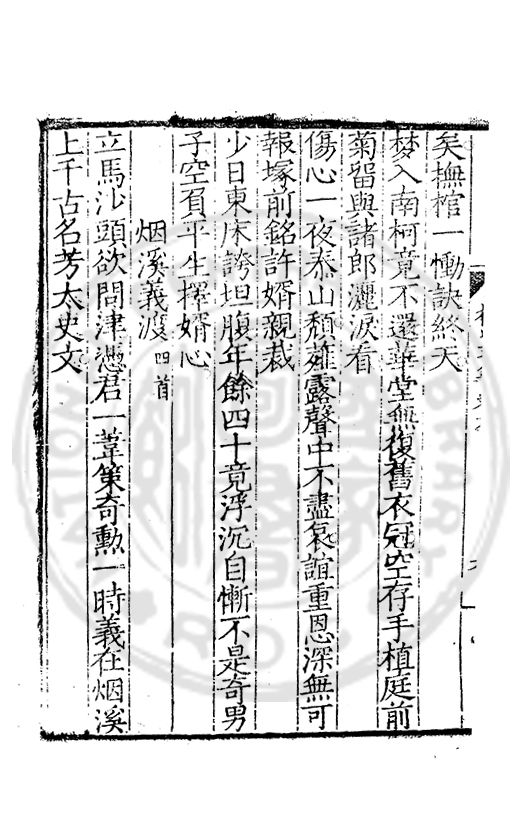 矣撫棺一慟訣終天
梦入南柯竟不還華堂無復舊衣冠空存手植庭前
菊留與諸郎灑淚看
傷心一夜泰山頹薤露聲中不盡哀誼重恩深無可
報塚前銘許婿親裁
少日東床誇坦腹年餘四十竟浮沉自慚不是奇男
子空負平生擇婿心
烟溪義渡四首
立馬沙頭欲問津憑君一葦策奇勳一時義在烟溪
上千古名芳太史文